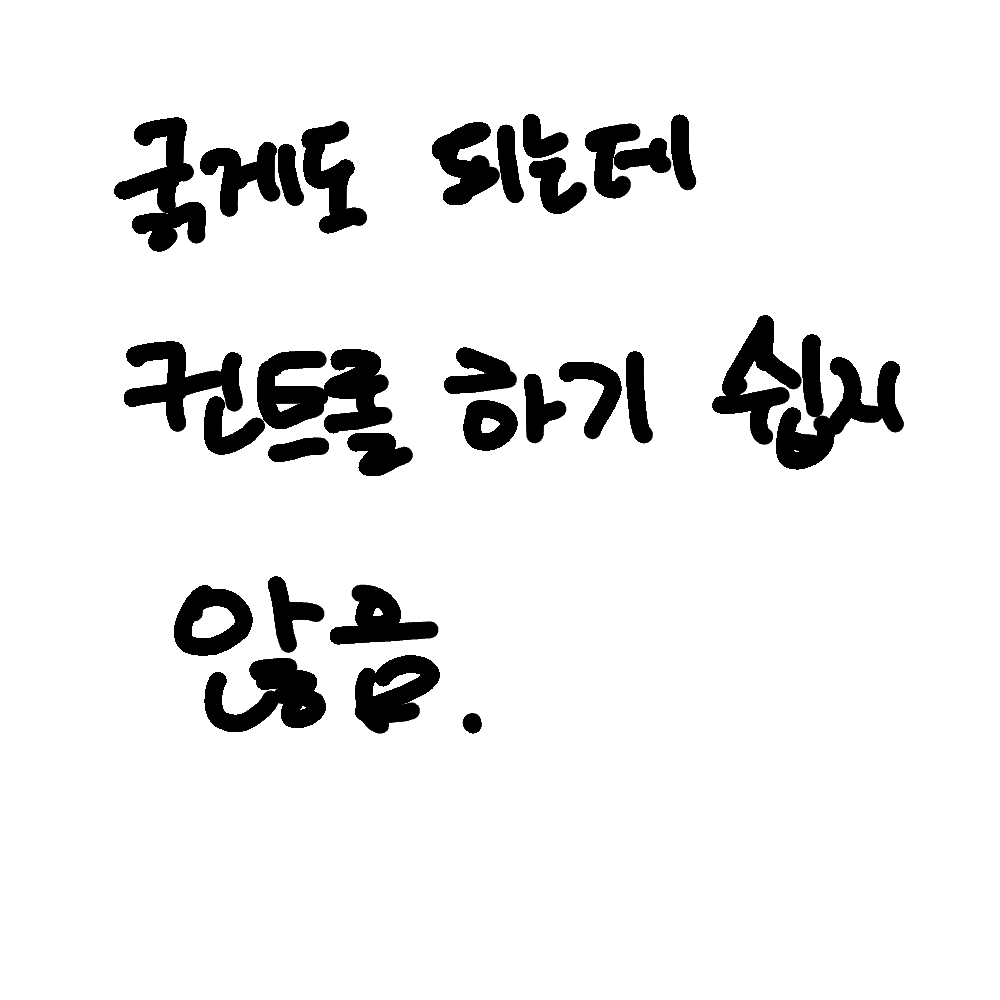 굵게도 되는데
컨트롤 하기 쉽지
않음.